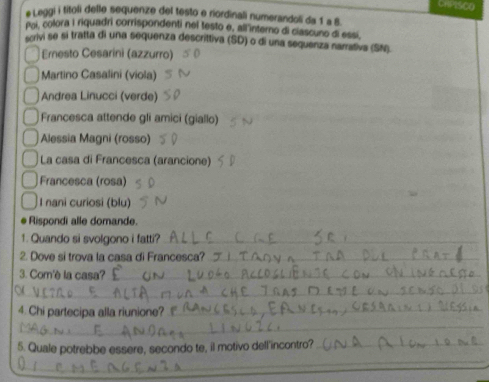 CAPISCO
Leggi i titoli delle sequenze del testo e riordinali numerandoli da 1 a 8.
Poi, colora i riquadri corrispondenti nel testo e, all'interno di ciascuno di essi,
scrivi se si tratta di una sequenza descrittiva (SD) o di una sequenza narrativa (SN).
Ernesto Cesarini (azzurro) SD
Martino Casalini (viola) SN
Andrea Linucci (verde) SD
Francesca attende gli amici (giallo) SN
Alessia Magni (rosso) SD
La casa di Francesca (arancione) SD
Francesca (rosa) SD
I nani curiosi (blu) SN
Rispondi alle domande.
1. Quando si svolgono i fatti? ALLE SEI
2. Dove si trova la casa di Francesca? SI TROVA TRA
3. Com'è la casa? È UN LUOGO ACCOGLIENTE CON UN INGRESSO
DI VETRO E ALTA MURA CHE UN SENSO DI
4. Chi partecipa alla riunione? FRANCESCA, ERNESTO, CESARINI, ALESSIA
MAGNI E ANDREA LINUCCI
5. Quale potrebbe essere, secondo te, il motivo dell'incontro? UNA RIUNIONE
DI EMERGENZA